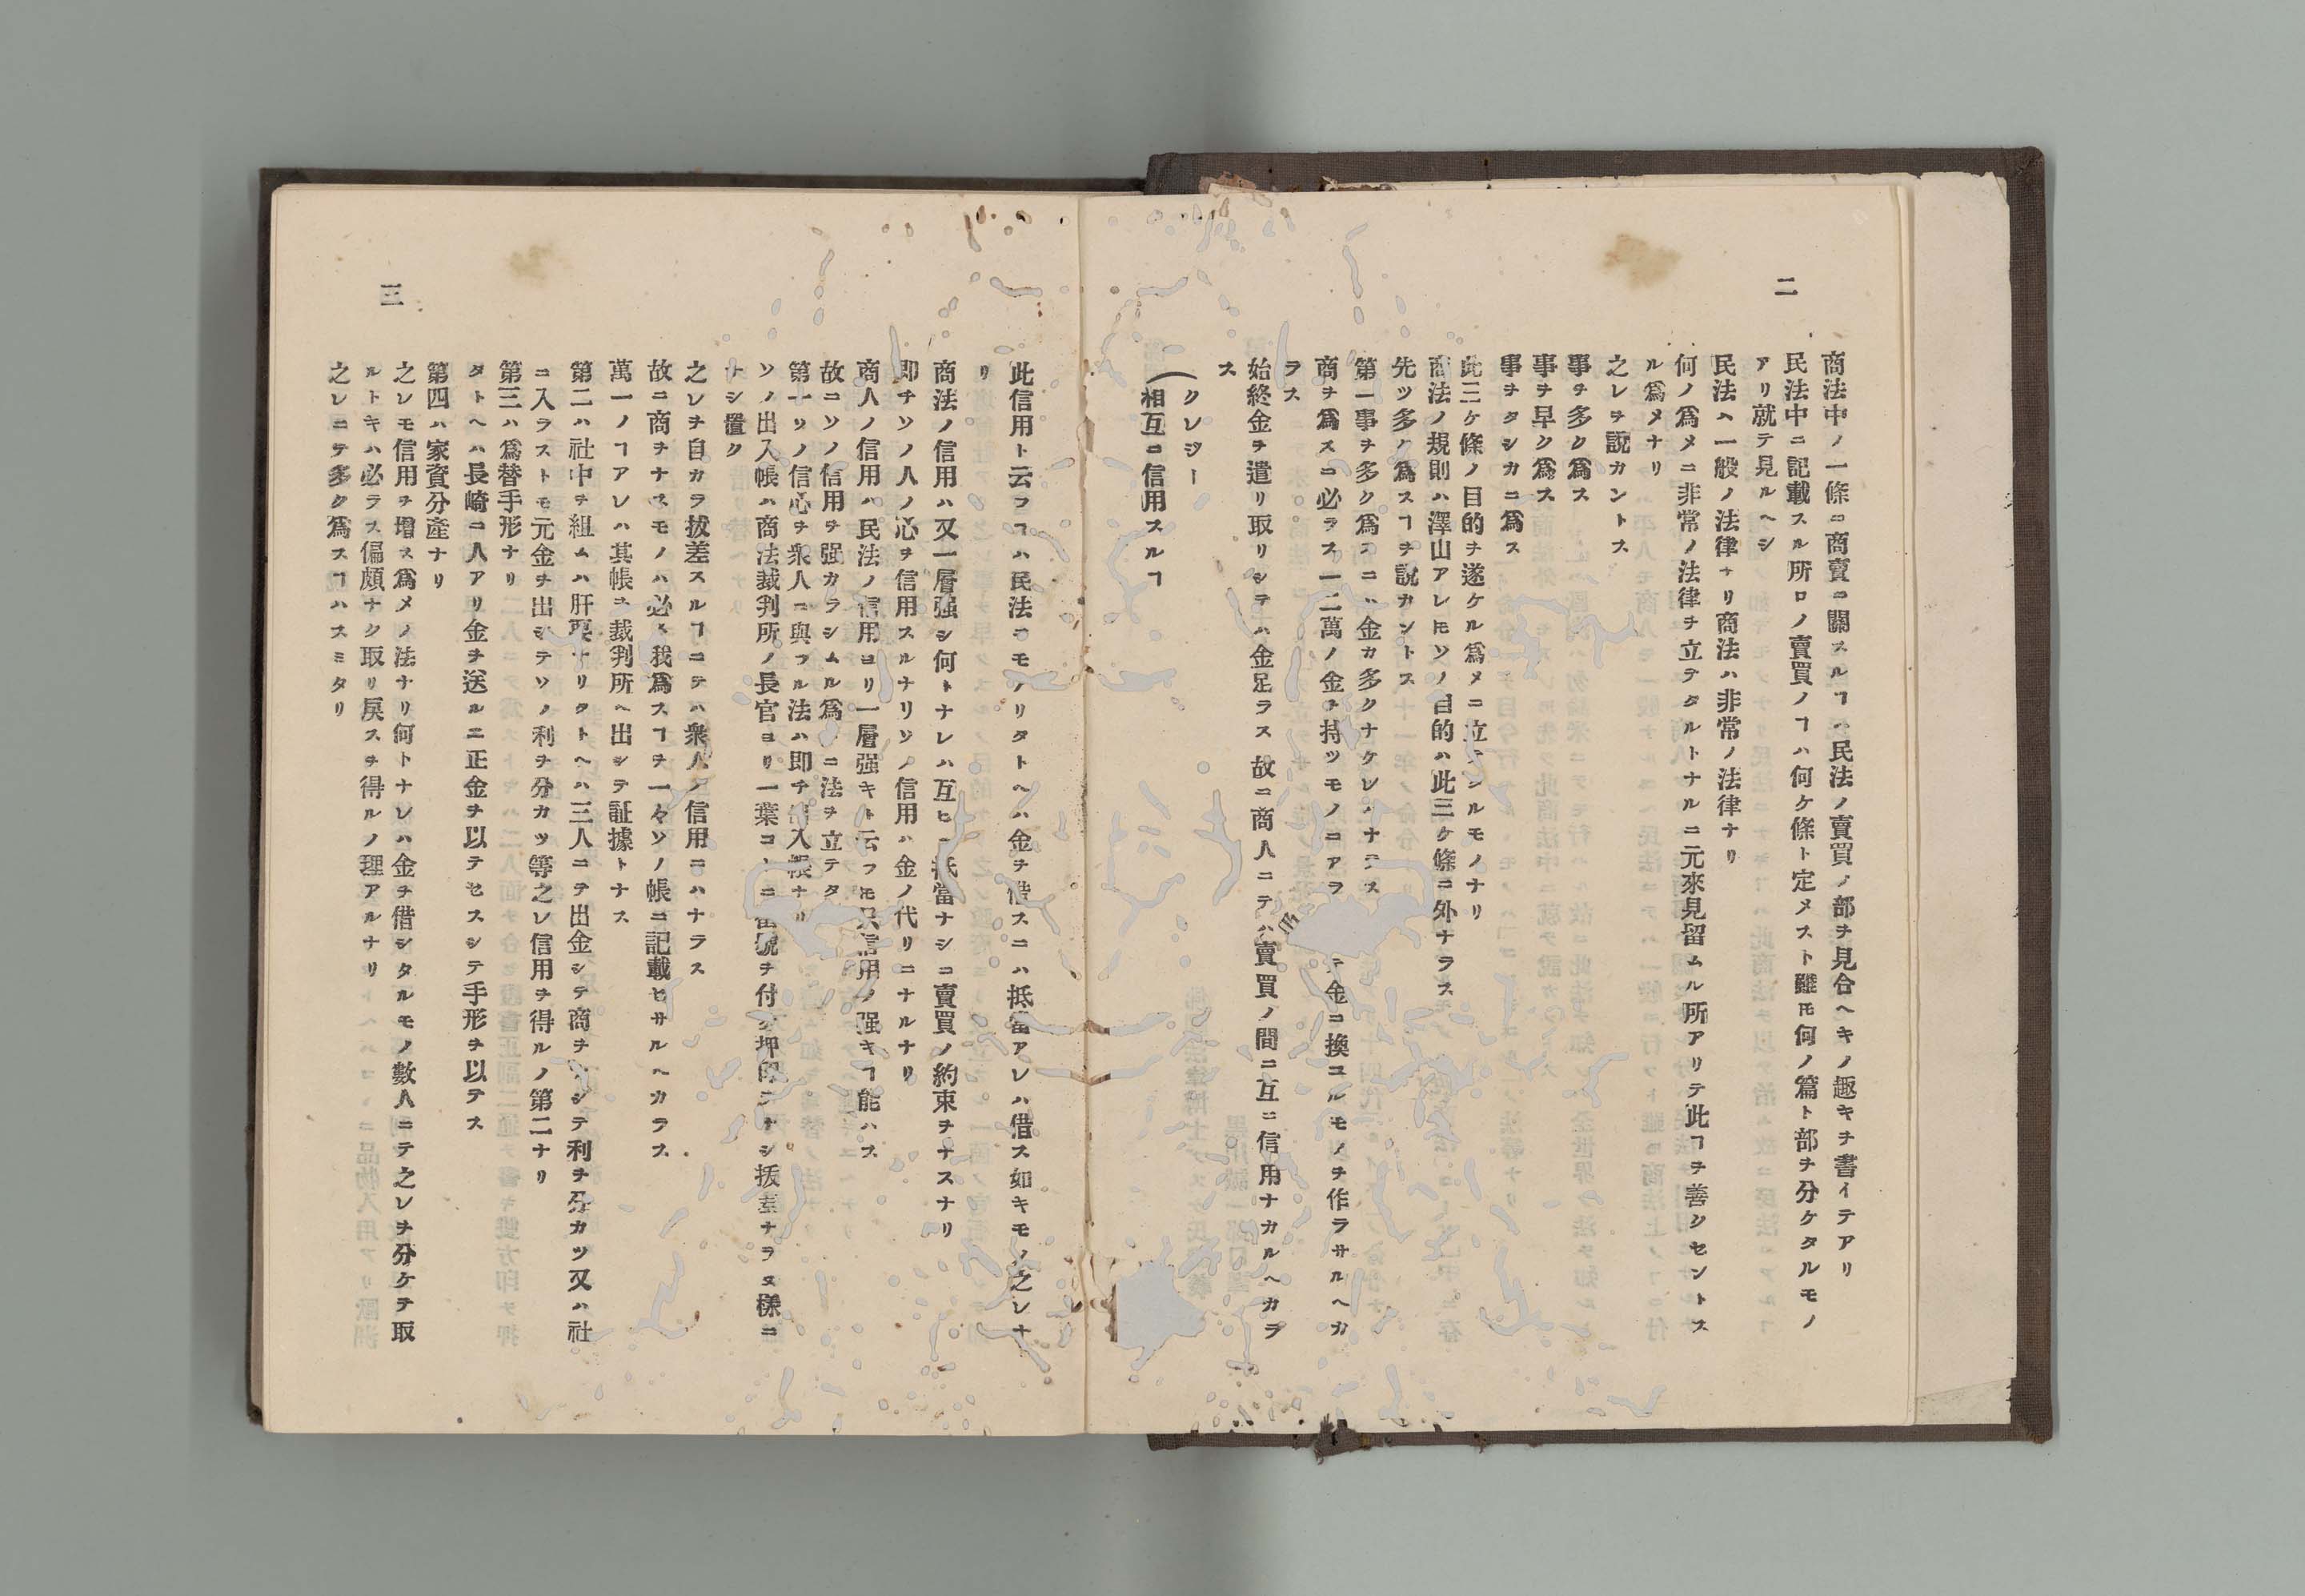 二
商法中ノ一條ニ商賣ニ關スルヿハ民法ノ賣買ノ部ヲ見合ヘキノ趣キヲ書イテアリ
民法中ニ記載スル所ロノ賣買ノヿハ何ケ條ト定メスト雖𪜈何ノ篇ト部ヲ分ケタルモノ
アリ就テ見ルヘシ
民法ハ一般ノ法律ナリ商法ハ非常ノ法律ナリ
何ノ爲メニ非常ノ法律ヲ立テタルトナルニ元來見留ムル所アリテ此ヿヲ善クセントス
ル爲メナリ
之レヲ說カントス
事ヲ多ク爲ス
事ヲ早ク爲ス
事ヲタシカニ爲ス
此三ケ條ノ目的ヲ遂ケル爲メニ立テシルモノナリ
商法ノ規則ハ澤山アレ𪜈ソノ目的ハ此三ケ條ニ外ナラス
先ツ多ク爲スヿヲ說カントス
第一事ヲ多ク爲スニハ金カ多クナケレハナラス
商ヲ爲スニ必ラス一二萬ノ金ヲ持ツモノニアラ テ金ニ換ユルモノヲ作ラサルヘカ
ラス
始終金ヲ遣リ取リシテハ金足ラス故ニ商人ニテハ賣買ノ間ニ互ニ信用ナカルヘカラ
ス
(クレジー
相互ニ信用スルヿ
此信用ト云フヿハ民法ニモアリタトヘハ金ヲ借スニハ抵當アレハ借ス如キモノ之レナ
リ
商法ノ信用ハ又一層强シ何トナレハ互ヒニ抵當ナシニ賣買ノ約束ヲナスナリ
卽チソノ人ノ心ヲ信用スルナリソノ信用ハ金ノ代リニナルナリ
商人ノ信用ハ民法ノ信用ヨリ一層强キト云フ𪜈只信用ノ强キヿ能ハス
故ニソノ信用ヲ强カラシムル爲 ニ法ヲ立テタ
第一ソノ信心ヲ衆人ニ與フル法ハ卽チ出入帳ナリ
ソノ出入帳ハ商法裁判所ノ長官ヨリ一葉コトニ番號ヲ付ケ押印ヲナシ拔差ナラヌ樣ニ
ナシ置ク
之レヲ自カラ拔差スルヿニテハ衆人ノ信用ニハナラス
故ニ商ヲナスモノハ必ス我爲スヿヲ一々ソノ帳ニ記載セサルヘカラス
萬一ノヿアレハ其帳ヲ裁判所ヘ出シテ証據トナス
第二ハ社中ヲ組ムハ肝要ナリタトヘハ三人ニテ出金シテ商ヲナシテ利ヲ分カツ又ハ社
ニ入ラストモ元金ヲ出シテソノ利ヲ分カツ等之レ信用ヲ得ルノ第二ナリ
第三ハ爲替手形ナリ
タトヘハ長崎ニ人アリ金ヲ送ルニ正金ヲ以テセスシテ手形ヲ以テス
第四ハ家資分產ナリ
之レモ信用ヲ增ス爲メノ法ナリ何トナレハ金ヲ借シタルモノ數人ニテ之レヲ分ケテ取
ルトキハ必ラス偏頗ナク取リ戾スヲ得ルノ理アルナリ
之レニテ多ク爲スヿハスミタリ
三